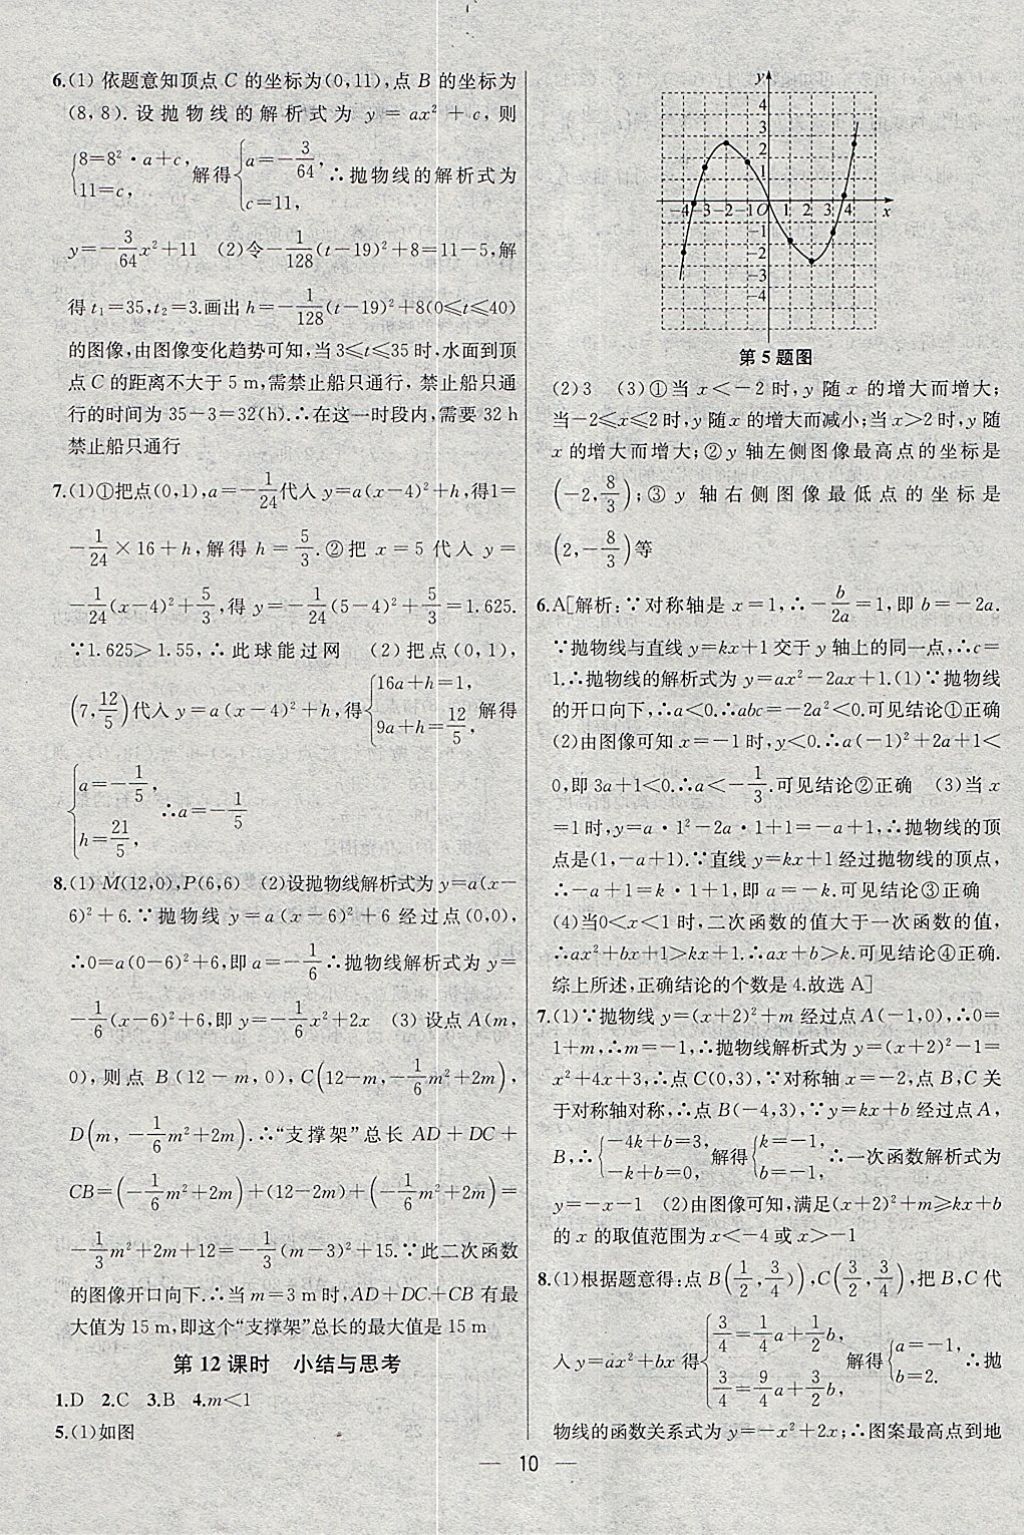 6.(1) 依题意知顶点 C 的坐标为(0,11),点 B 的坐标为
(8,8).设抛物线的解析式为 y = ax² + c,则
{8=8²·a+c, 11=c, 解得{a=-3/64, c=11, ∴抛物线的解析式为
y=-3/64x²+11 (2)令-1/128(t-19)²+8=11-5,解
得 t₁=35,t₂=3.画出 h=-1/128(t-19)²+8(0≤t≤40)
的图像,由图像变化趋势可知,当3≤t≤35时,水面到顶
点 C 的距离不大于 5 m,需禁止船只通行,禁止船只通
行的时间为 35-3=32(h).∴在这一时段内,需要 32 h
禁止船只通行
7.(1)①把点(0,1),a=-1/24代入 y=a(x-4)²+h,得1=
-1/24×16+h,解得 h=5/3.②把 x=5 代入 y=
-1/24(x-4)²+5/3,得 y=-1/24(5-4)²+5/3=1.625.
∵1.625>1.55,∴此球能过网 (2)把点(0,1),
(7,12/5)代入 y=a(x-4)²+h,得{16a+h=1, 9a+h=12/5, 解得
{a=-1/5, h=21/5, ∴a=-1/5
8.(1) M(12,0),P(6,6) (2)设抛物线解析式为 y=a(x-
6)²+6.∵抛物线 y=a(x-6)²+6 经过点(0,0),
∴0=a(0-6)²+6,即a=-1/6∴抛物线解析式为 y=
-1/6(x-6)²+6,即 y=-1/6x²+2x (3) 设点 A(m,
0),则点 B(12-m,0),C(12-m,-1/6m²+2m),
D(m,-1/6m²+2m).∴“支撑架”总长 AD+DC+
CB=(-1/6m²+2m)+(12-2m)+(-1/6m²+2m)=
-1/3m²+2m+12=-1/3(m-3)²+15.∵此二次函数
的图像开口向下.∴当 m=3 m时,AD+DC+CB有最
大值为 15 m,即这个“支撑架”总长的最大值是 15 m
第 12 课时 小结与思考
1.D 2.C 3.B 4.m<1
5.(1)如图
y
4
3
2
1
-4-3-2-1 O 1 2 3 4 x
-1
-2
-3
-4
第 5 题图
(2)3 (3)①当 x<-2 时,y 随 x 的增大而增大;
当-2≤x≤2时,y随x的增大而减小;当x>2时,y随
x 的增大而增大;②y 轴左侧图像最高点的坐标是
(-2,8/3);③ y 轴右侧图像最低点的坐标是
(2,-8/3)等
6.A[解析:∵对称轴是 x=1,∴-b/2a=1,即 b=-2a.
∵抛物线与直线 y=kx+1交于 y轴上的同一点,∴c=
1.∴抛物线的解析式为 y=ax²-2ax+1.(1)∵抛物线
的开口向下,∴a<0.∴abc=-2a²<0.可见结论①正确
(2)由图像可知 x=-1时,y<0.∴a(-1)²+2a+1<
0,即3a+1<0.∴a<-1/3.可见结论②正确 (3)当 x
=1时,y=a·1²-2a·1+1=-a+1,∴抛物线的顶
点是(1,-a+1).∵直线 y=kx+1经过抛物线的顶点,
∴-a+1=k·1+1,即 a=-k.可见结论③正确
(4)当0<x<1时,二次函数的值大于一次函数的值,
∴ax²+bx+1>kx+1.∴ax+b>k.可见结论④正确.
综上所述,正确结论的个数是 4.故选 A]
7.(1)∵抛物线 y=(x+2)²+m 经过点 A(-1,0),∴0=
1+m,∴m=-1,∴抛物线解析式为 y=(x+2)²-1=
x²+4x+3,∴点C(0,3),∵对称轴x=-2,点B,C关
于对称轴对称,∴点 B(-4,3),∵y=kx+b 经过点 A,
B,∴{-4k+b=3, -k+b=0, 解得{k=-1, b=-1, ∴一次函数解析式为
y=-x-1 (2)由图像可知,满足(x+2)²+m≥kx+b
的 x 的取值范围为 x<-4 或 x>-1
8.(1)根据题意得:点 B(1/2,3/4)),C(3/2,3/4),把 B,C代
入 y=ax²+bx 得{3/4=1/4a+1/2b, 3/4=9/4a+3/2b 解得{a=-1, b=2. ∴抛
物线的函数关系式为 y=-x²+2x;∴图案最高点到地
10